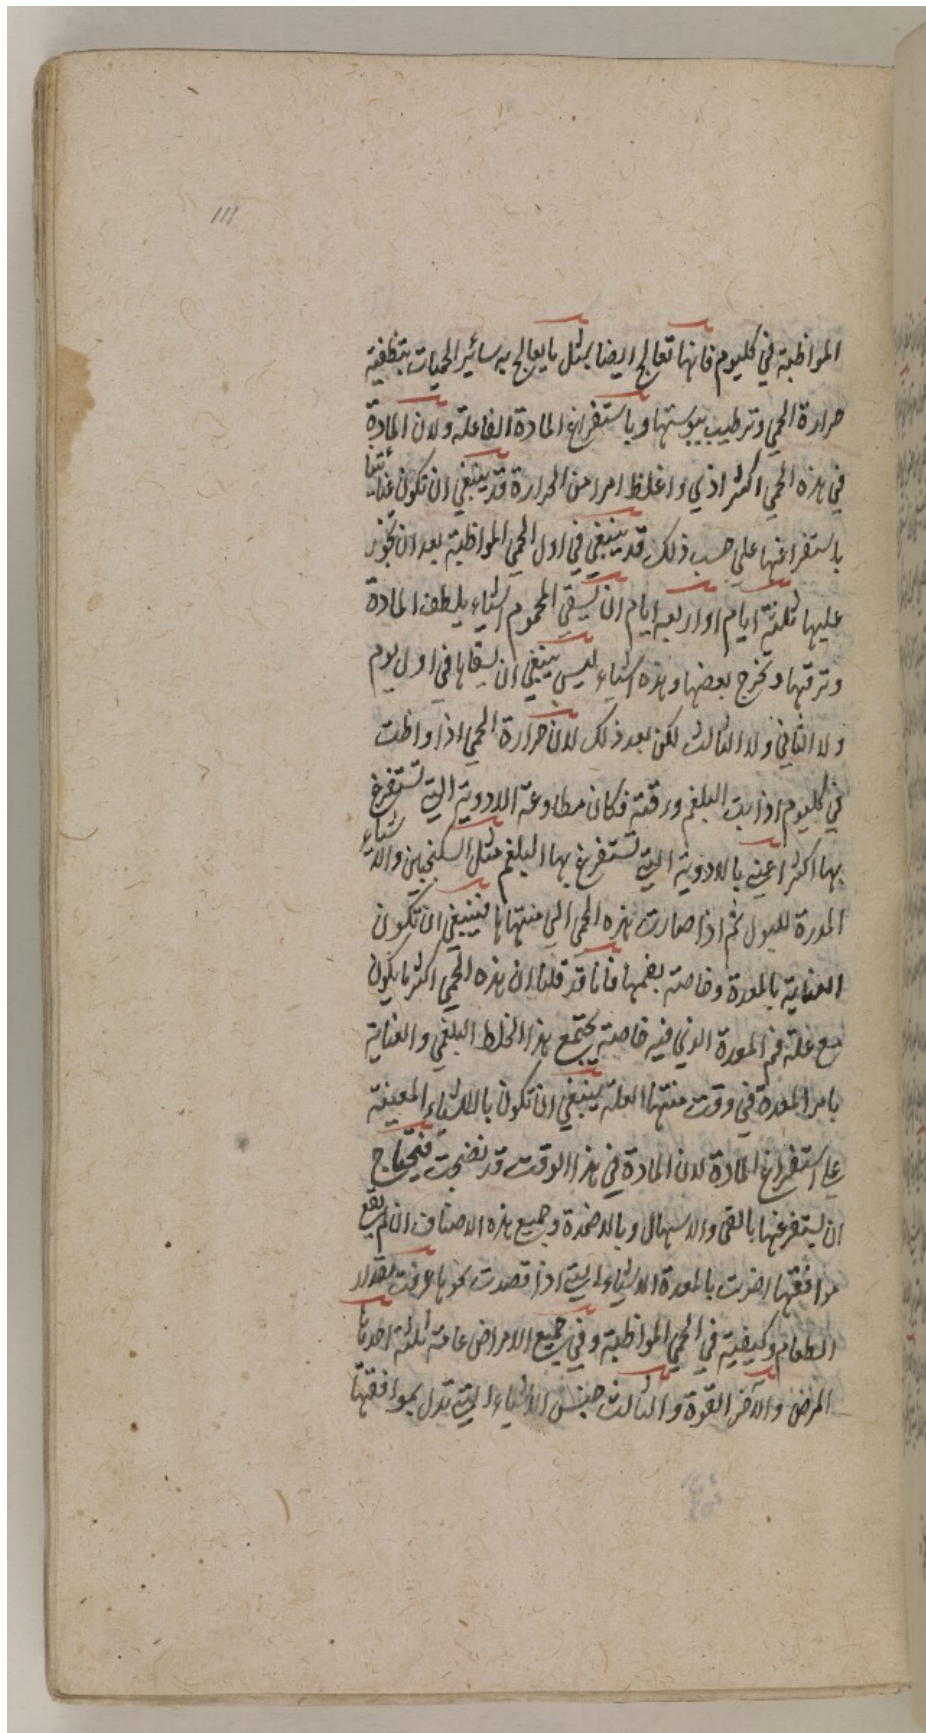 ١١١
المواظبة في كليوم فانها تعالج ايضا بمثل ما يعالج به سائر الحميات بتطفية
حرارة الحمي وترطيب يبوستها وباستفراغ المادة الفاعلة ولان المادة
في هذه الحمي اكثر اذي واغلظ امرا من الحرارة قد ينبغي ان تكون عنايتنا
باستفراغها علي حسب ذلك قد ينبغي في اول الحمي المواظبة بعد ان تجوز
عليها ثلثة ايام او اربعه ايام ان يسقي المحموم اشياء يلطف المادة
وترقها وتخرج بعضها وهذه اشياء ليس ينبغي ان يسقاها في اول يوم
ولا الثاني ولا الثالث لكن بعد ذلك لان حرارة الحمي اذا واظبت
في كليوم اذابت البلغم ورققته فكان مطاوعته الادوية التي تستفرغ
بها اكثر اعني بالادوية التي تستفرغ بها البلغم مثل السكنجبين والاشياء
المدرة للبول ثم اذا صارت هذه الحمي الي منتهاها فينبغي ان تكون
العناية بالمعدة وخاصته بفمها فانا قد قلنا ان هذه الحمي اكثر ما يكون
مع علة فم المعدة الذي فيه خاصته يجتمع هذا الخلط البلغمي والعناية
بامر المعدة في وقت منتها العلة ينبغي ان تكون بالاشياء المعينة
علي استفراغ المادة لان المادة في هذا الوقت قد نضجت فتحتاج
ان يستفرغها بالقي والاسهال وبالاضمدة وجميع هذه الاصناف ان لم يقع
موافقتها اضرت بالمعدة الاشياء التي اذا قصدت نحوها عرفت مقدار
الطعام وكيفيته في الحمي المواظبة وفي جميع الامراض عامة ثلثة احدها
المرض والآخر القوة والثالث جنس الاشياء التي تدل بموافقتها